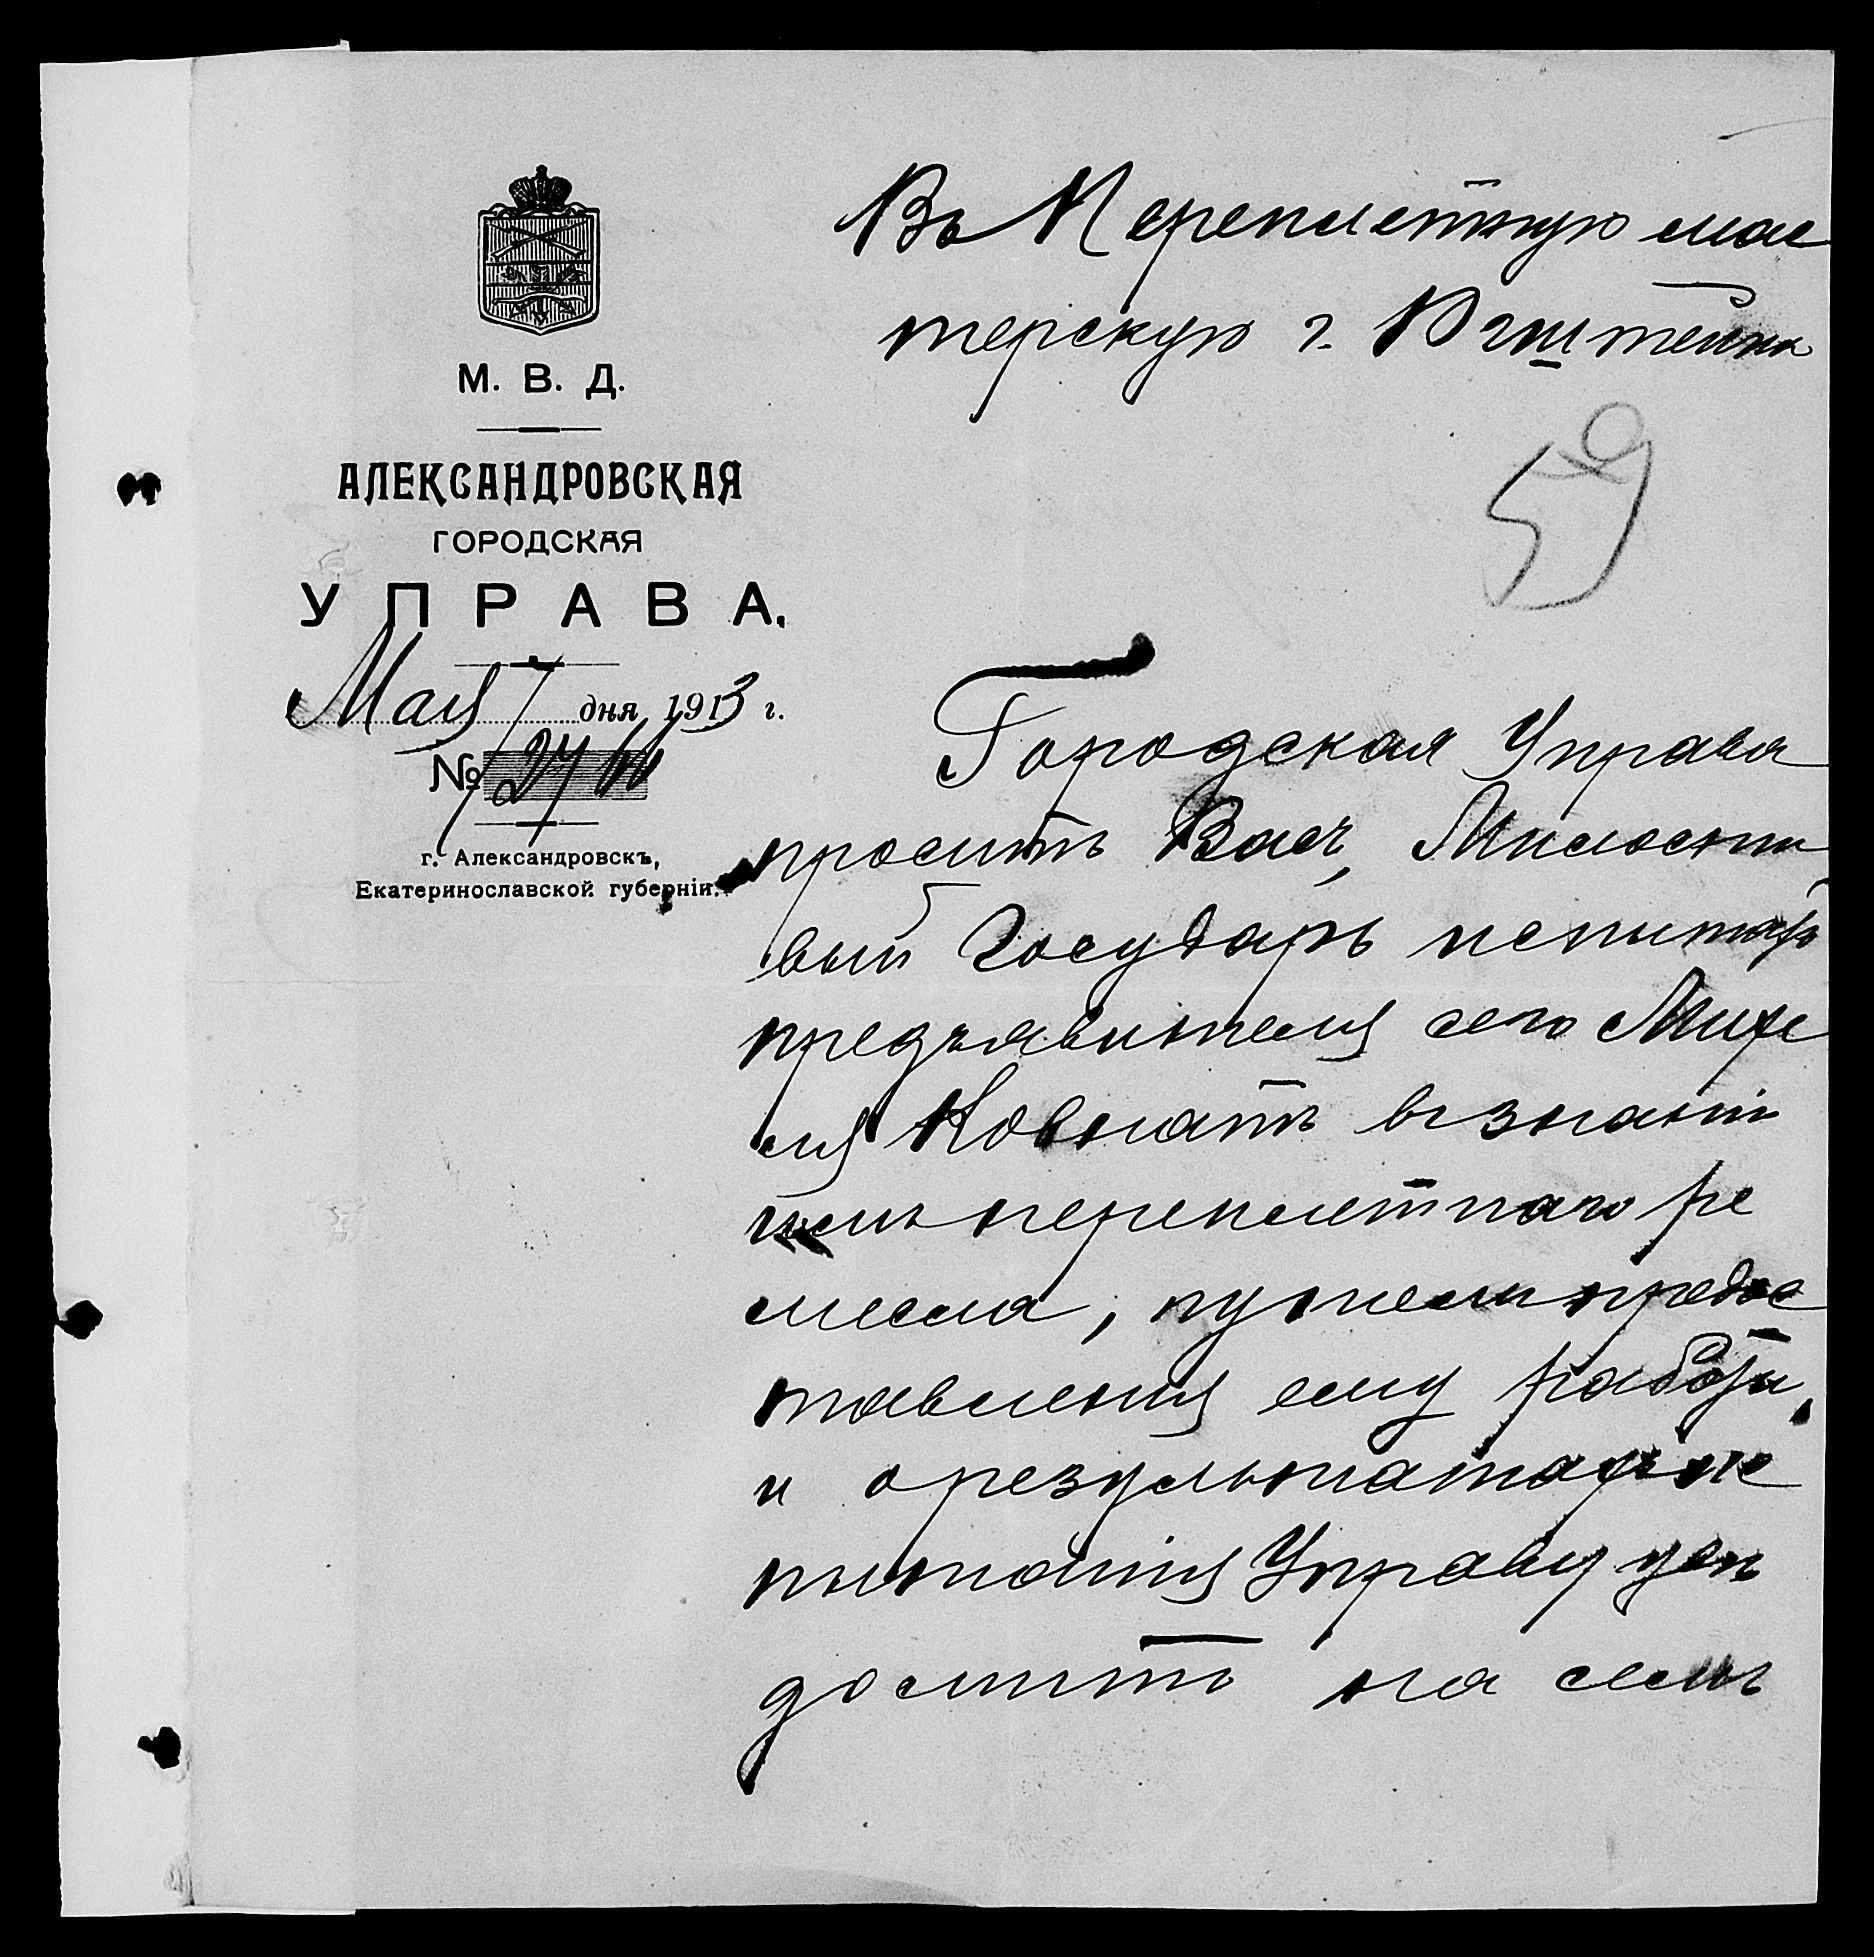 М. В. Д.
АЛЕКСАНДРОВСКАЯ
ГОРОДСКАЯ
УПРАВА.
Мая 7 дня 1913 г.
№
г. Александровскъ,
Екатеринославской губерніи.
Въ Переплетную мас
терскую г.
59
Городская Управа
проситъ Васъ, Милости
вый Государь испытать
предъявителя сего Михе
ля Ковнатъ въ знаніи
имъ переплетнаго ре
месла, путемъ предос
тавленія ему работы,
и о результатахъ ис
пытанія Управу увѣ
домить на семъ